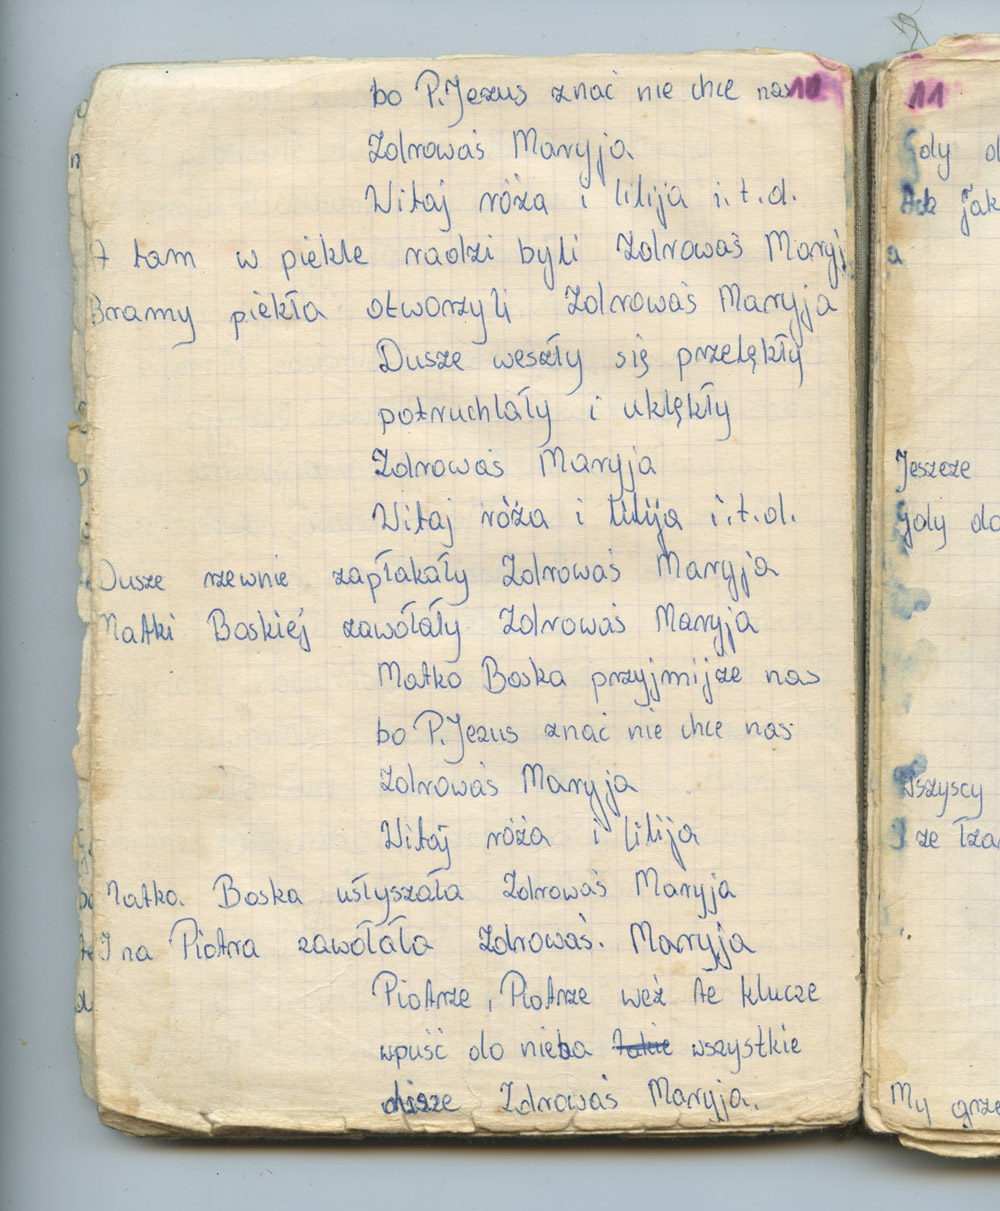 bo P. Jezus znać nie chce nas 10
Zdrowaś Maryja
Witaj róża i lilija i.t.d.
A tam w piekle radzi byli Zdrowaś Maryj
Bramy piekła otworzyli Zdrowaś Maryja
Dusze weszły się przelękły
potruchlały i uklękły
Zdrowaś Maryja
Witaj róża i lilija i.t.d.
Dusze rzewnie zapłakały Zdrowaś Maryja
Matki Boskiej zawołały Zdrowaś Maryja
Matko Boska przyjmijże nas
bo P. Jezus znać nie chce nas
Zdrowaś Maryja
Witaj róża i lilija
Matka Boska usłyszała Zdrowaś Maryja
I na Piotra zawołała Zdrowaś. Maryja
Piotrze, Piotrze weź te klucze
wpuść do nieba takie wszystkie
dusze Zdrowaś Maryja.
11
Gdy
Ach jak
a
Jeszcze
Gdy do
Wszyscy
I ze łza
My grze